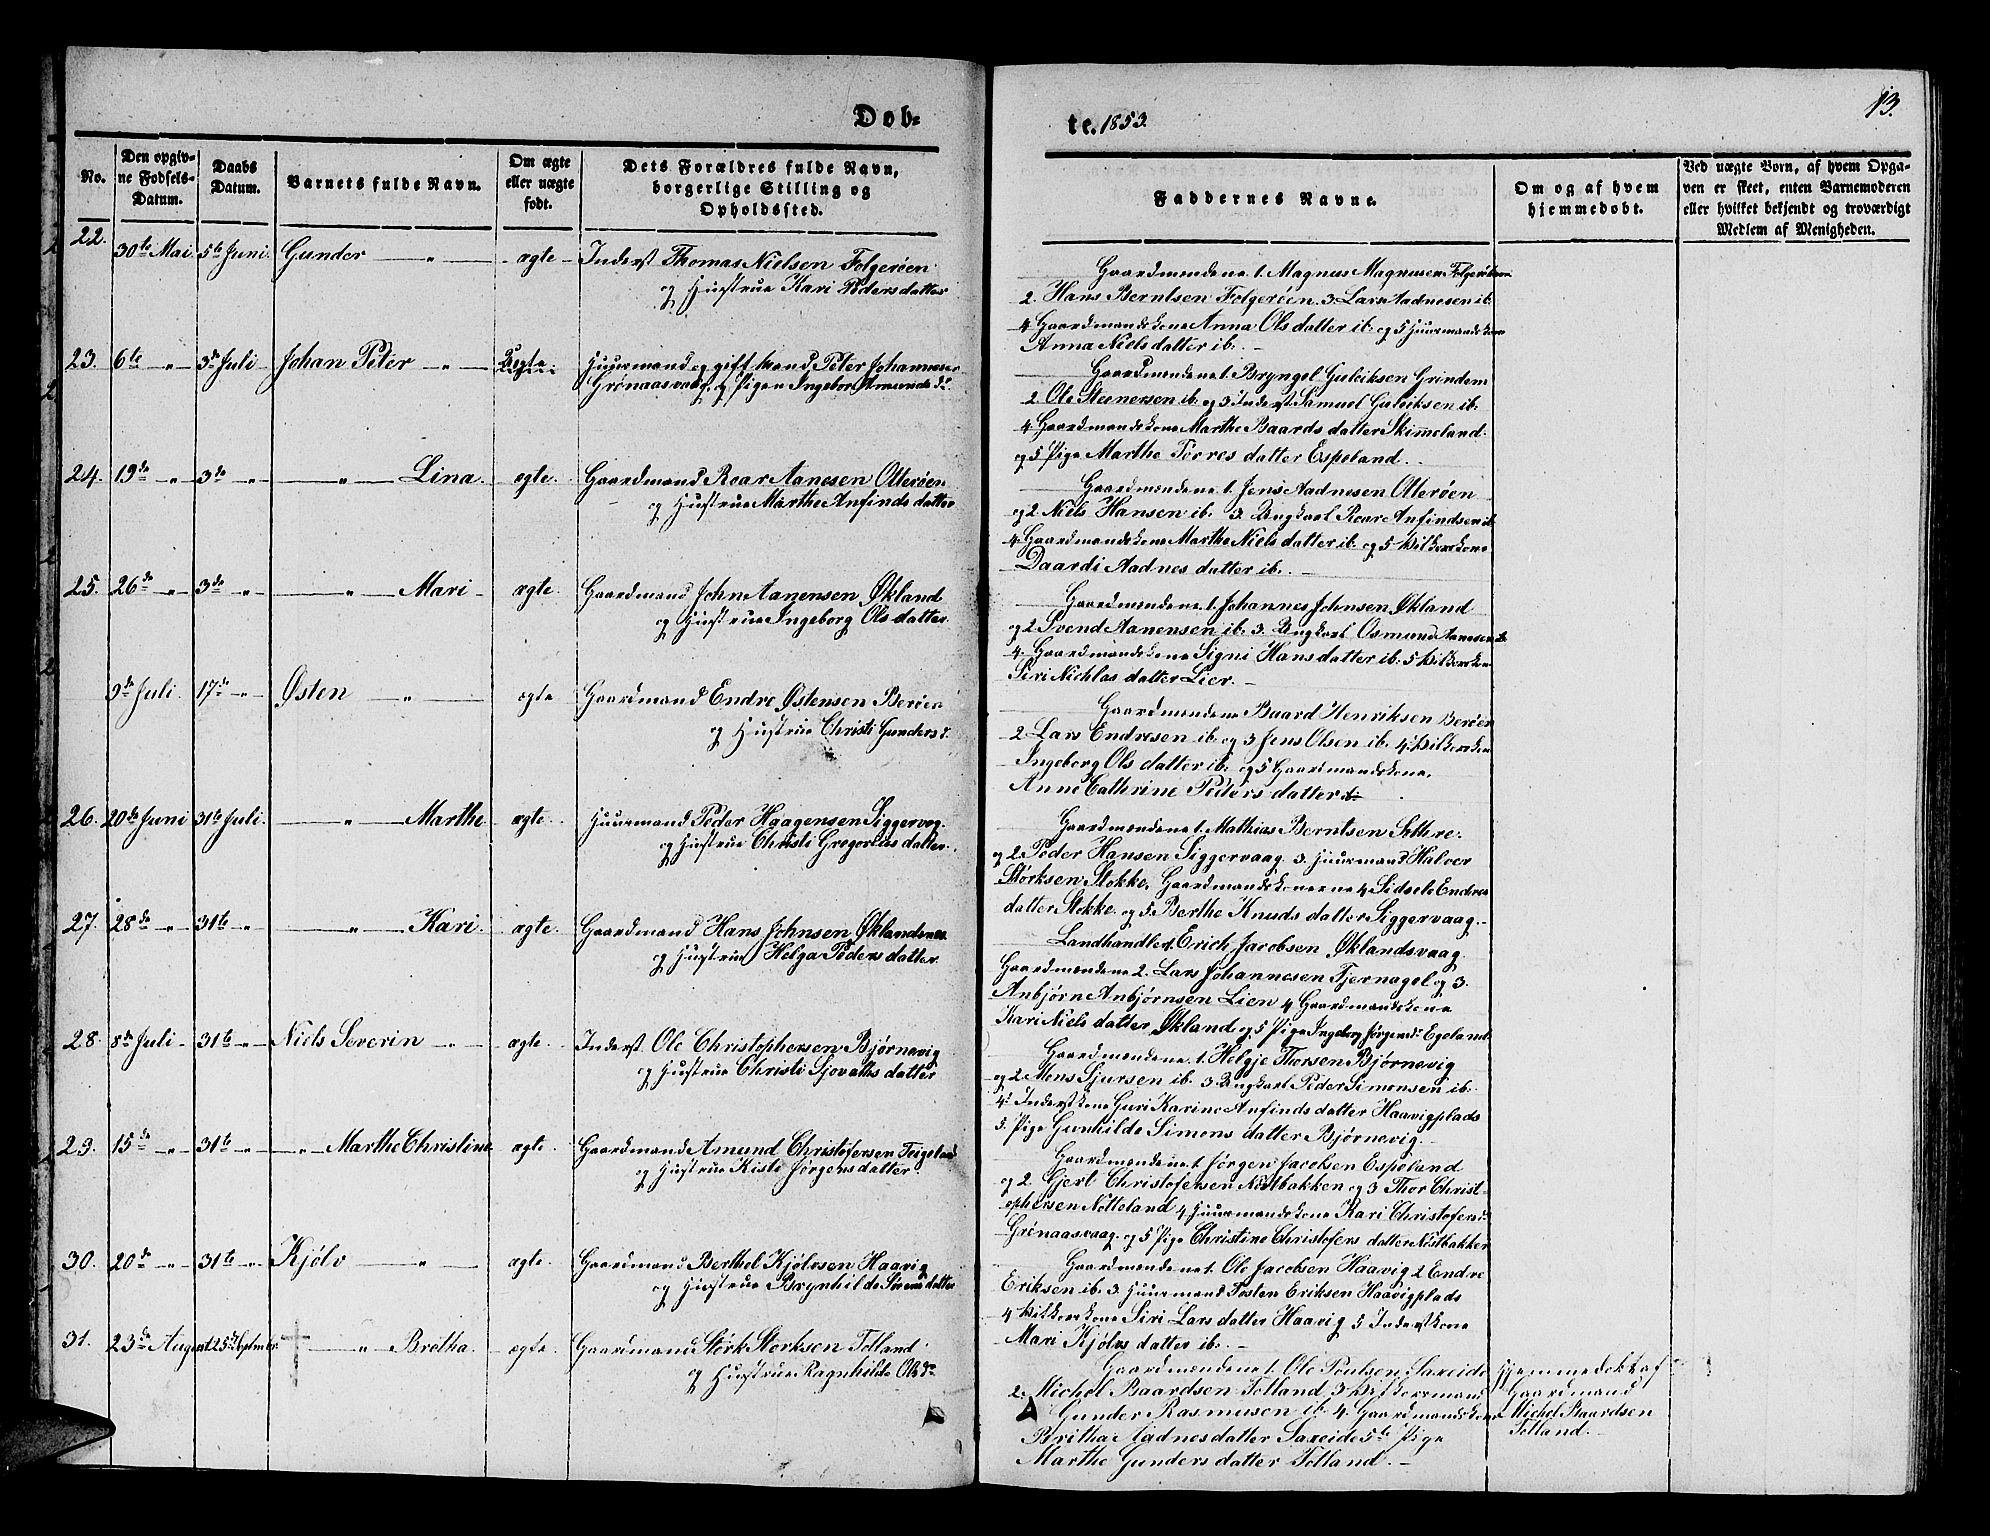 Døb-
No.
Den opgiv-
ne Fødsels-
Datum.
Daabs
Datum.
Barnets fulde Navn.
Om ægte
eller uægte
født.
Dets Forældres fulde Navn,
borgerlige Stilling og
Opholdssted.
22. 30te Mai 5te Juni. Gunder — " — ægte - Inderst Thomas Nielsen Folgerøen
og Hustrue Kari Pedersdatter
23. 6te - " - 3de Juli Johan Peter - " - Huurmand og gift Mand Peter Johannesen
Grønaasvaag og Pigen Ingebor Amunds dr.
24. 19de - " - 3de - " - " — Lina. ægte. Gaardmand Roar Aanesen Otterøen
og Hustrue Marthe Anfindsdatter
25. 26de - " - 3de - " - " — Mari - ægte. Gaardmand John Aanensen Økland
og Hustrue Ingeborg Olsdatter.
9de Juli. 17de - " - Østen — " — ægte Gaardmand Endre Østensen Berøen
og Hustrue Christi Gunders d.
26. 20de Juni 31te Juli. — " — Marthe ægte. Huurmand Peder Haagensen Siggervog.
og Hustrue Christi Gregorius datter.
27. 28de - " - 31te - " - " — Kari. ægte. Gaardmand Hans Johnsen Øklandsnes
og Hustrue Helga Peders datter.
28. 8de Juli - 31te - " - Niels Severin - " - ægte. Inderst Ole Christophersen Bjørnevig
og Hustrue Christi Sjovaths datter
29. 15de - " - 31te - " - " - Marthe Christine ægte. Gaardmand Amund Christofersen Teigeland
og Hustrue Kisti Jørgensdatter.
30. 20de - " - 31te - " - Kjølv — " — ægte. Gaardmand Berthel Kjølvsen Haavig
og Hustrue Brynhilde Sørensdatter
31. 23de August 25de September — " — Britha. ægte. Gaardmand Størk Størksen Totland
og Hustrue Ragnhilde Ols dr.
te. 1853.
13.
Faddernes Navne.
Om og af hvem
hjemmedøbt.
Ved uægte Børn, af hvem Opga-
ven er skeet, enten Barnemoderen
eller hvilket bekjendt og troværdigt
Medlem af Menigheden.
Gaardmændene 1. Magnus Magnusen Folgerøen
2. Hans Berntsen Folgerøen. 3. Lars Aadnesen ib.
4 Gaardmandskone Anna Olsdatter ib. og 5 Huurmandskone
Anna Nielsdatter ib. -
Gaardmændene 1. Bryngel Guleiksen Grindem
2. Ole Steenersen ib. og 3 Inderst Samuel Guleiksen ib.
4. Gaardmandskone Marthe Baards datter Skimmeland.
og 5 Pige Marthe Torres datter Espeland.
Gaardmændene 1. Jens Aadnesen Otterøen
og 2 Niels Hansen ib. 3. Ungkarl Roar Anfindsen ib.
4. Gaardmandskone Marthe Niels datter ib. og 5 Vilkorskone
Daardi Aadnes datter ib. -
Gaardmændene 1. Johannes Johnsen Økland
og 2 Svend Aanensen ib. 3. Ungkarl Osmund Aanesen ib.
4. Gaardmandskone Signi Hansdatter ib. 5 Vilkorskone
Siri Nichlas datter Lier. -
Gaardmændene Baard Henriksen Berøen
2. Lars Endresen ib. og 3 Jens Olsen ib. 4. Vilkorskone
Ingeborg Olsdatter ib. og 5 Gaardmandskone.
Anne Cathrine Peders datter
Gaardmændene 1. Mathias Berntsen Settre.
og 2. Peder Hansen Siggervaag. 3. Huurmand Halvor
Størksen Stokke, Gaardmandskonerne 4. Sidsele Endres
datter Stokke. og 5. Berthe Knudsdatter Siggervaag. -
Landhandler Erich Jacobsen Øklandsvaag.
Gaardmændene 2. Lars Johannesen Tjernagel og 3.
Anbjørn Anbjørnsen Lien 4 Gaardmandskone
Kari Niels datter Økland og 5 Pige Ingeborg Jørgens dr. Egeland.
Gaardmændene. 1. Helgje Thorsen Bjørnevig
og 2. Mons Sjursen ib. 3. Ungkarl Peder Simonsen ib.
4. Inderstkone Guri Karine Anfindsdatter Haavigplads
5. Pige Gunhilde Simons datter Bjørnevig. -
Gaardmændene 1. Jørgen Jacobsen Espeland
og 2. Gjert Christofersen Nøstbakken og 3 Thor Christ-
ophersen Notteland 4 Huurmandskone Kari Christofers dr
Grønaasvaag. og 5 Pige Christine Christofers datter Nøstbakken
Gaardmændene 1. Ole Jacobsen Haavig 2 Endre
Eriksen ib. 3. Huurmand Tosten Eriksen Haavigplads
4 Vilkorskone Siri Larsdatter Haavig 5 Inderstkone
Mari Kjølvs datter ib. -
Gaardmændene 1. Ole Poulsen Saxeide
2. Michel Baardsen Totland 3 Vilkorsmand
Gunder Rasmusen ib. 4. Gaardmandskone
Britha Aadnesdatter Saxeide 5te Pige
Marthe Gunders datter Totland. -
Hjemmedøbt af
Gaardmand
Michel Baardsen
Totland.